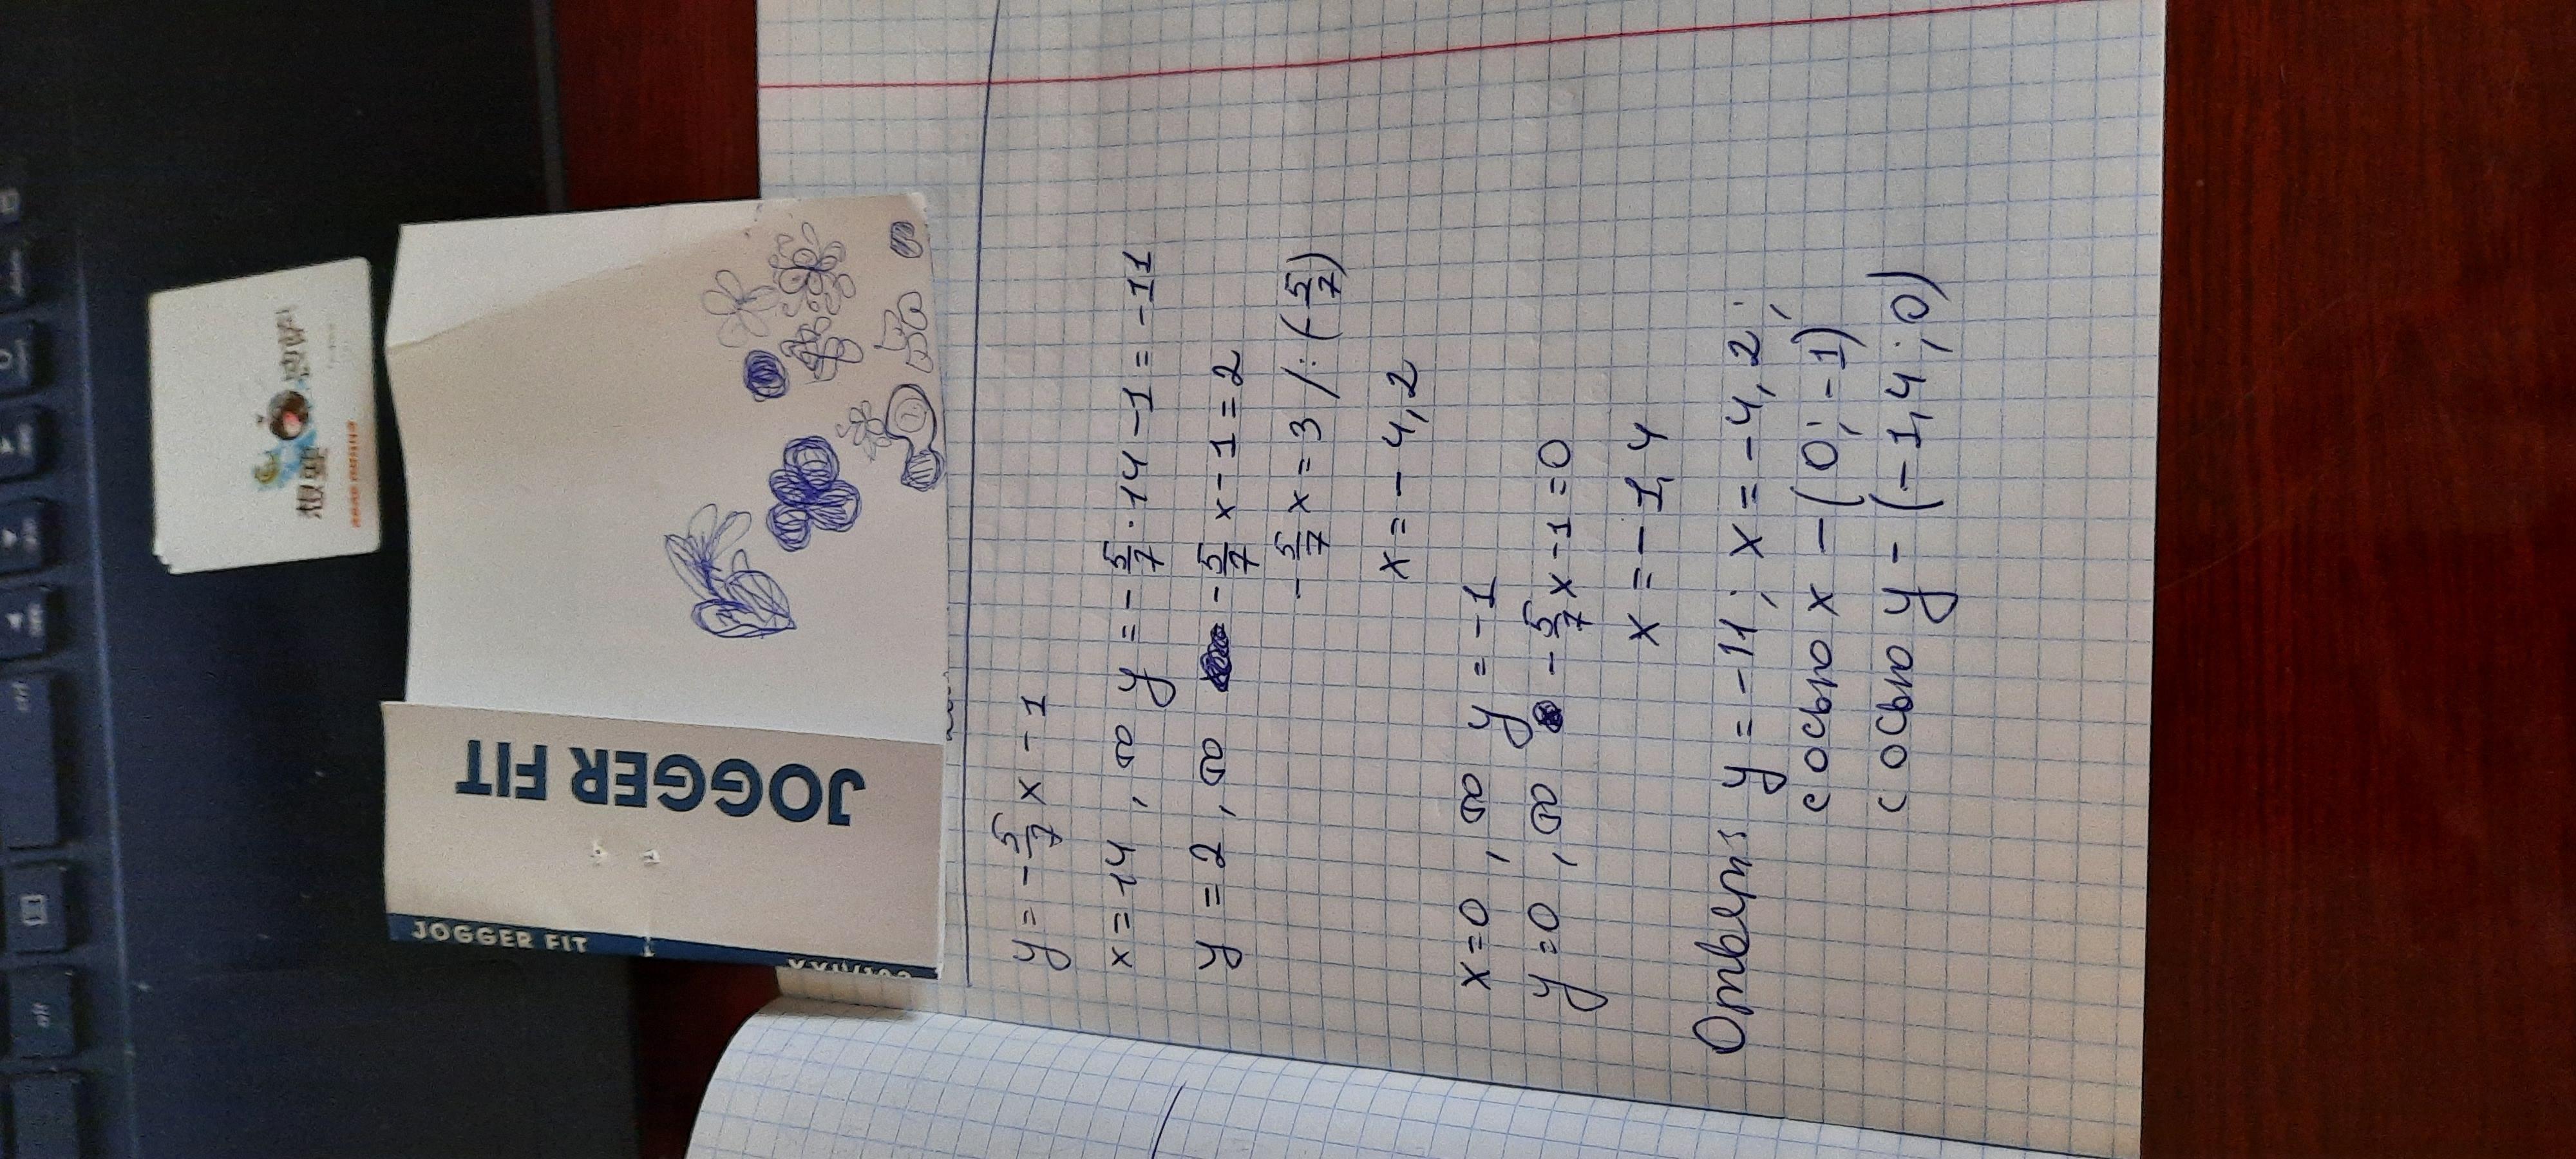 JOGGER FIT
JOGGER FIT
y = -5/7 x - 1
x = 14, то y = -5/7 · 14 - 1 = -11
y = 2, то -5/7 x - 1 = 2
-5/7 x = 3 /: (-5/7)
x = -4,2
x = 0, то y = -1
y = 0, то -5/7 x - 1 = 0
x = -1,4
Ответ: y = -11; x = -4,2;
с осью x - (0; -1)
с осью y - (-1,4; 0)